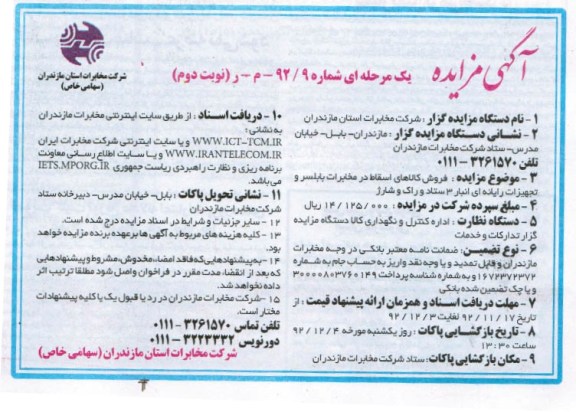 آگهی مزایده
یک مرحله ای شماره ۹۲/۹ – م – ر (نوبت دوم)
شرکت مخابرات استان مازندران
(سهامی خاص)
۱ – نام دستگاه مزایده گزار : شرکت مخابرات استان مازندران
۲ – نشانی دستگاه مزایده گزار : مازندران- بابل- خیابان
مدرس- ستاد شرکت مخابرات مازندران
تلفن ۳۲۶۱۵۷۰-۰۱۱۱
۳ – موضوع مزایده : فروش کالاهای اسقاط در مخابرات بابلسر و
تجهیزات رایانه ای انبار ۳ ستاد و راک و شارژ
۴ – مبلغ سپرده شرکت در مزایده : ۱۴/۱۲۵/۰۰۰ ریال
۵ – دستگاه نظارت : اداره کنترل و نگهداری کالا دستگاه مزایده
گزار تدارکات و خدمات
۶ – نوع تضمین : ضمانت نامه معتبر بانکی در وجه مخابرات
مازندران و قابل تمدید و یا وجه نقد واریز به حساب جام به شماره
۱۶۷۲۳۷۲۳۷۲ و به شماره شناسه پرداخت ۳۰۰۰۰۸۰۳۷۶۰۱۴۹
و یا چک تضمین شده بانکی
۷ – مهلت دریافت اسناد و همزمان ارائه پیشنهاد قیمت : از
تاریخ ۹۲/۱۱/۱۷ لغایت ۹۲/۱۲/۳
۸ – تاریخ بازگشایی پاکات : روز یکشنبه مورخه ۹۲/۱۲/۴
ساعت ۱۳:۳۰
۹ – مکان بازگشایی پاکات : ستاد شرکت مخابرات مازندران
۱۰ – دریافت اسناد : از طریق سایت اینترنتی مخابرات مازندران
به نشانی :
WWW.ICT-TCM.IR و یا سایت اینترنتی شرکت مخابرات ایران
WWW.IRANTELECOM.IR و یا سایت اطلاع رسانی معاونت
برنامه ریزی و نظارت راهبردی ریاست جمهوری IETS.MPORG.IR
می باشد.
۱۱ – نشانی تحویل پاکات : بابل- خیابان مدرس- دبیرخانه ستاد
شرکت مخابرات مازندران
۱۲ – سایر جزئیات و شرایط در اسناد مزایده درج شده است.
۱۳ – کلیه هزینه های مربوط به آگهی ها بر عهده برنده مزایده خواهد
بود.
۱۴ – به پیشنهادهایی که فاقد امضا، مخدوش، مشروط و پیشنهادهایی
که بعد از انقضاء مدت مقرر در فراخوان واصل شود مطلقا ترتیب اثر
داده نخواهد شد.
۱۵ – شرکت مخابرات مازندران در رد یا قبول یک یا کلیه پیشنهادات
مختار است.
تلفن تماس ۳۲۶۱۵۷۰ – ۰۱۱۱
دورنویس ۳۲۲۳۳۳۲ – ۰۱۱۱
شرکت مخابرات استان مازندران (سهامی خاص)